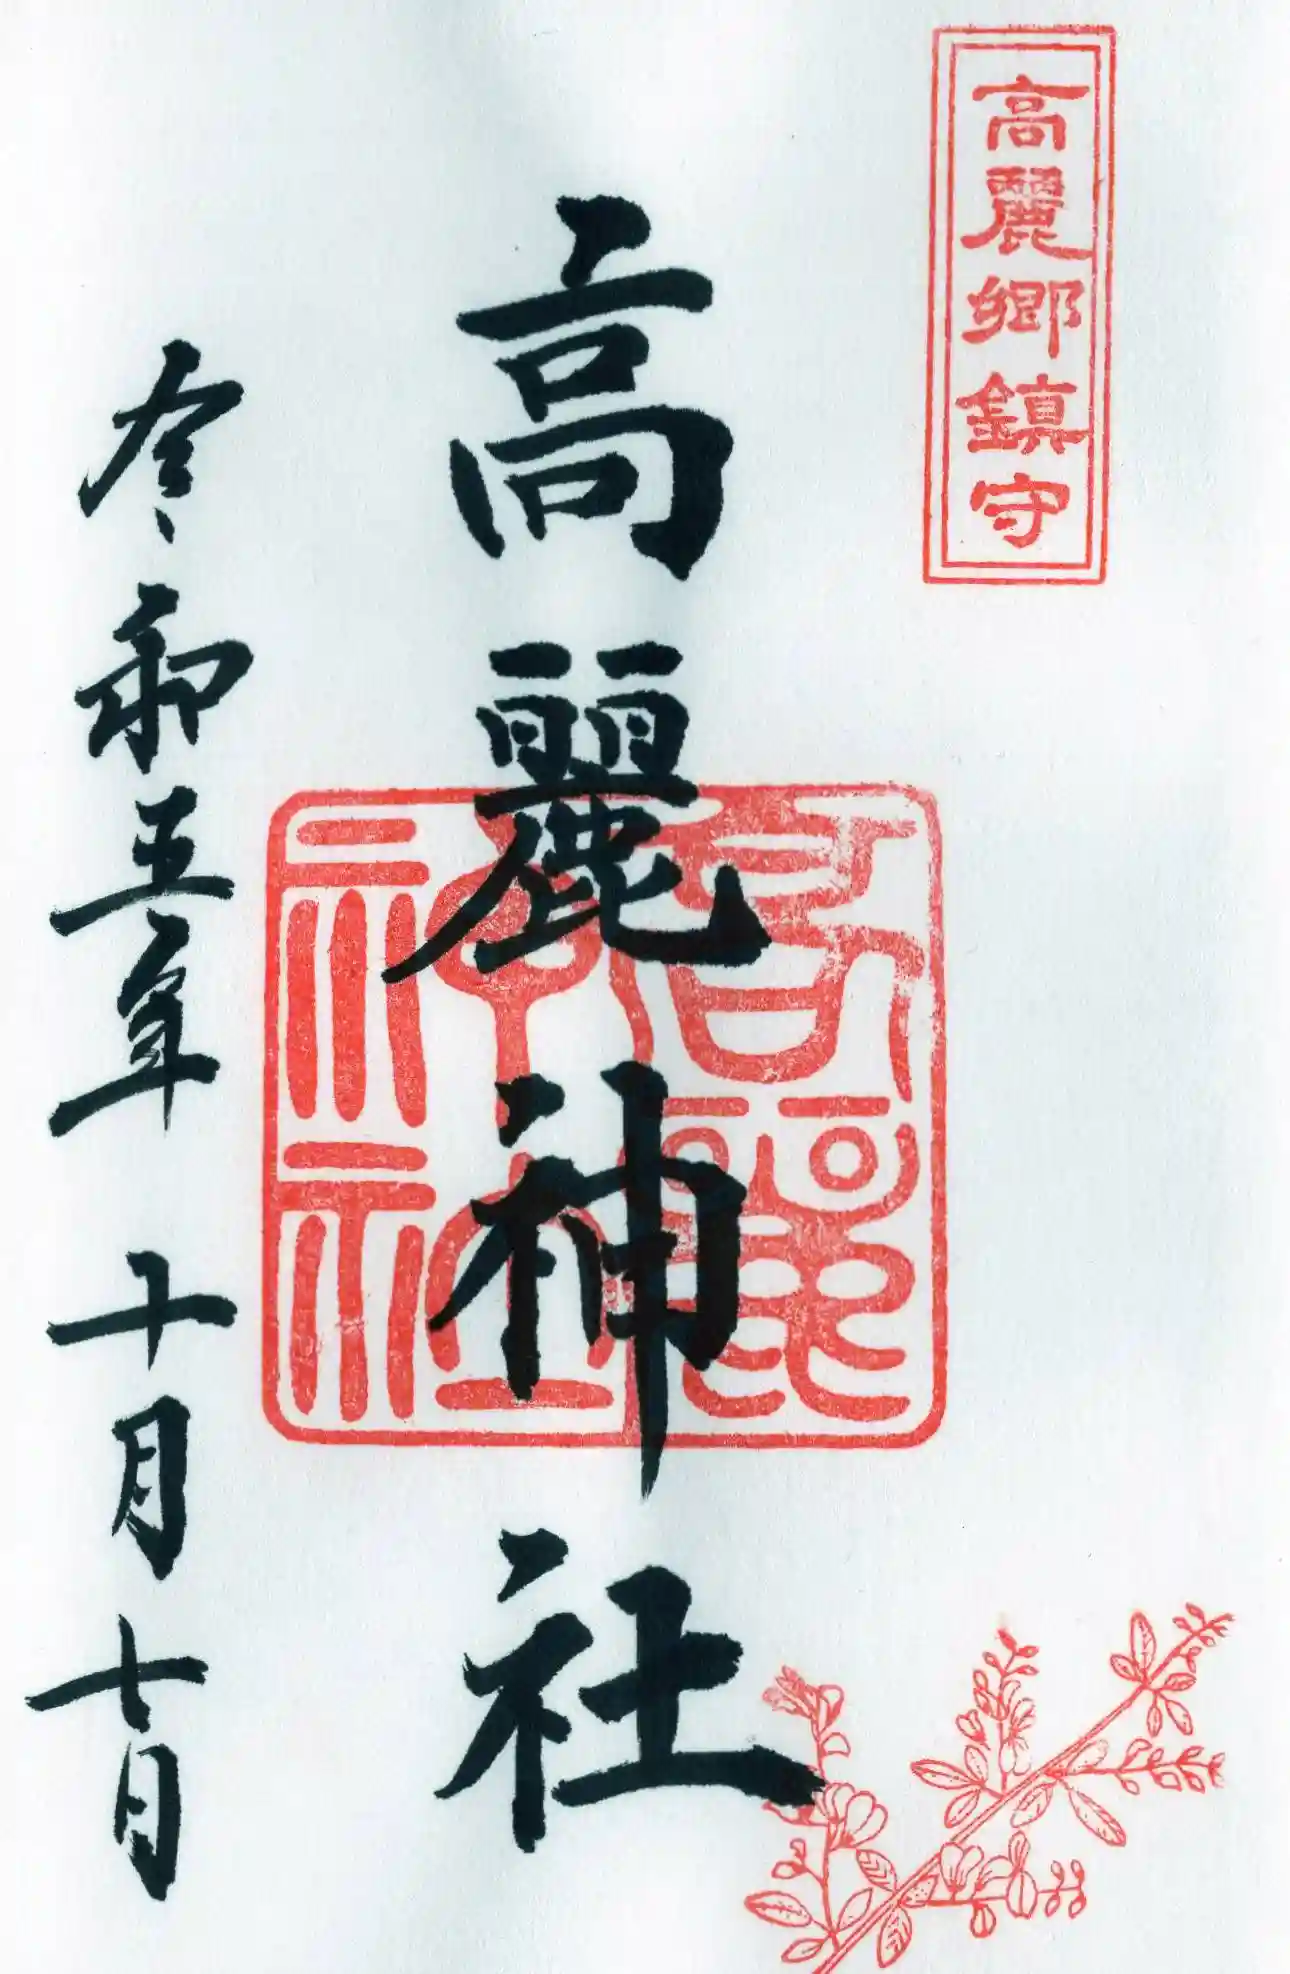 高麗郷鎮守
高麗神社
高麗神社
令和五年 十月七日